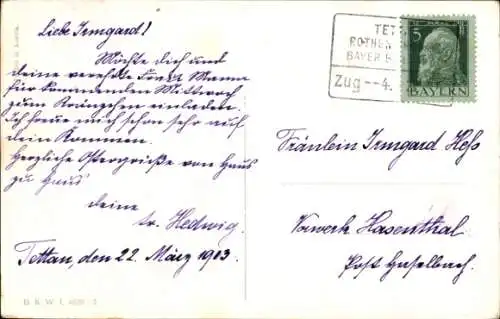 Liebe Irmgard!
Möchte dich und
deine verehrte Frau Mama
für kommenden Mittwoch
zum Kränzchen einladen.
Ich freue mich schon sehr auf
dein Kommen.
Herzliche Ostergrüße von Haus
zu Haus
deine
tr. Hedwig.
Tettau, den 22. März 1913.
B. K. W. I.
TET
ROTHEN
BAYER
Zug --4.
5
BAYERN
Fräulein Irmgard Heß
Vorwerk Hasenthal
Post Haselbach.